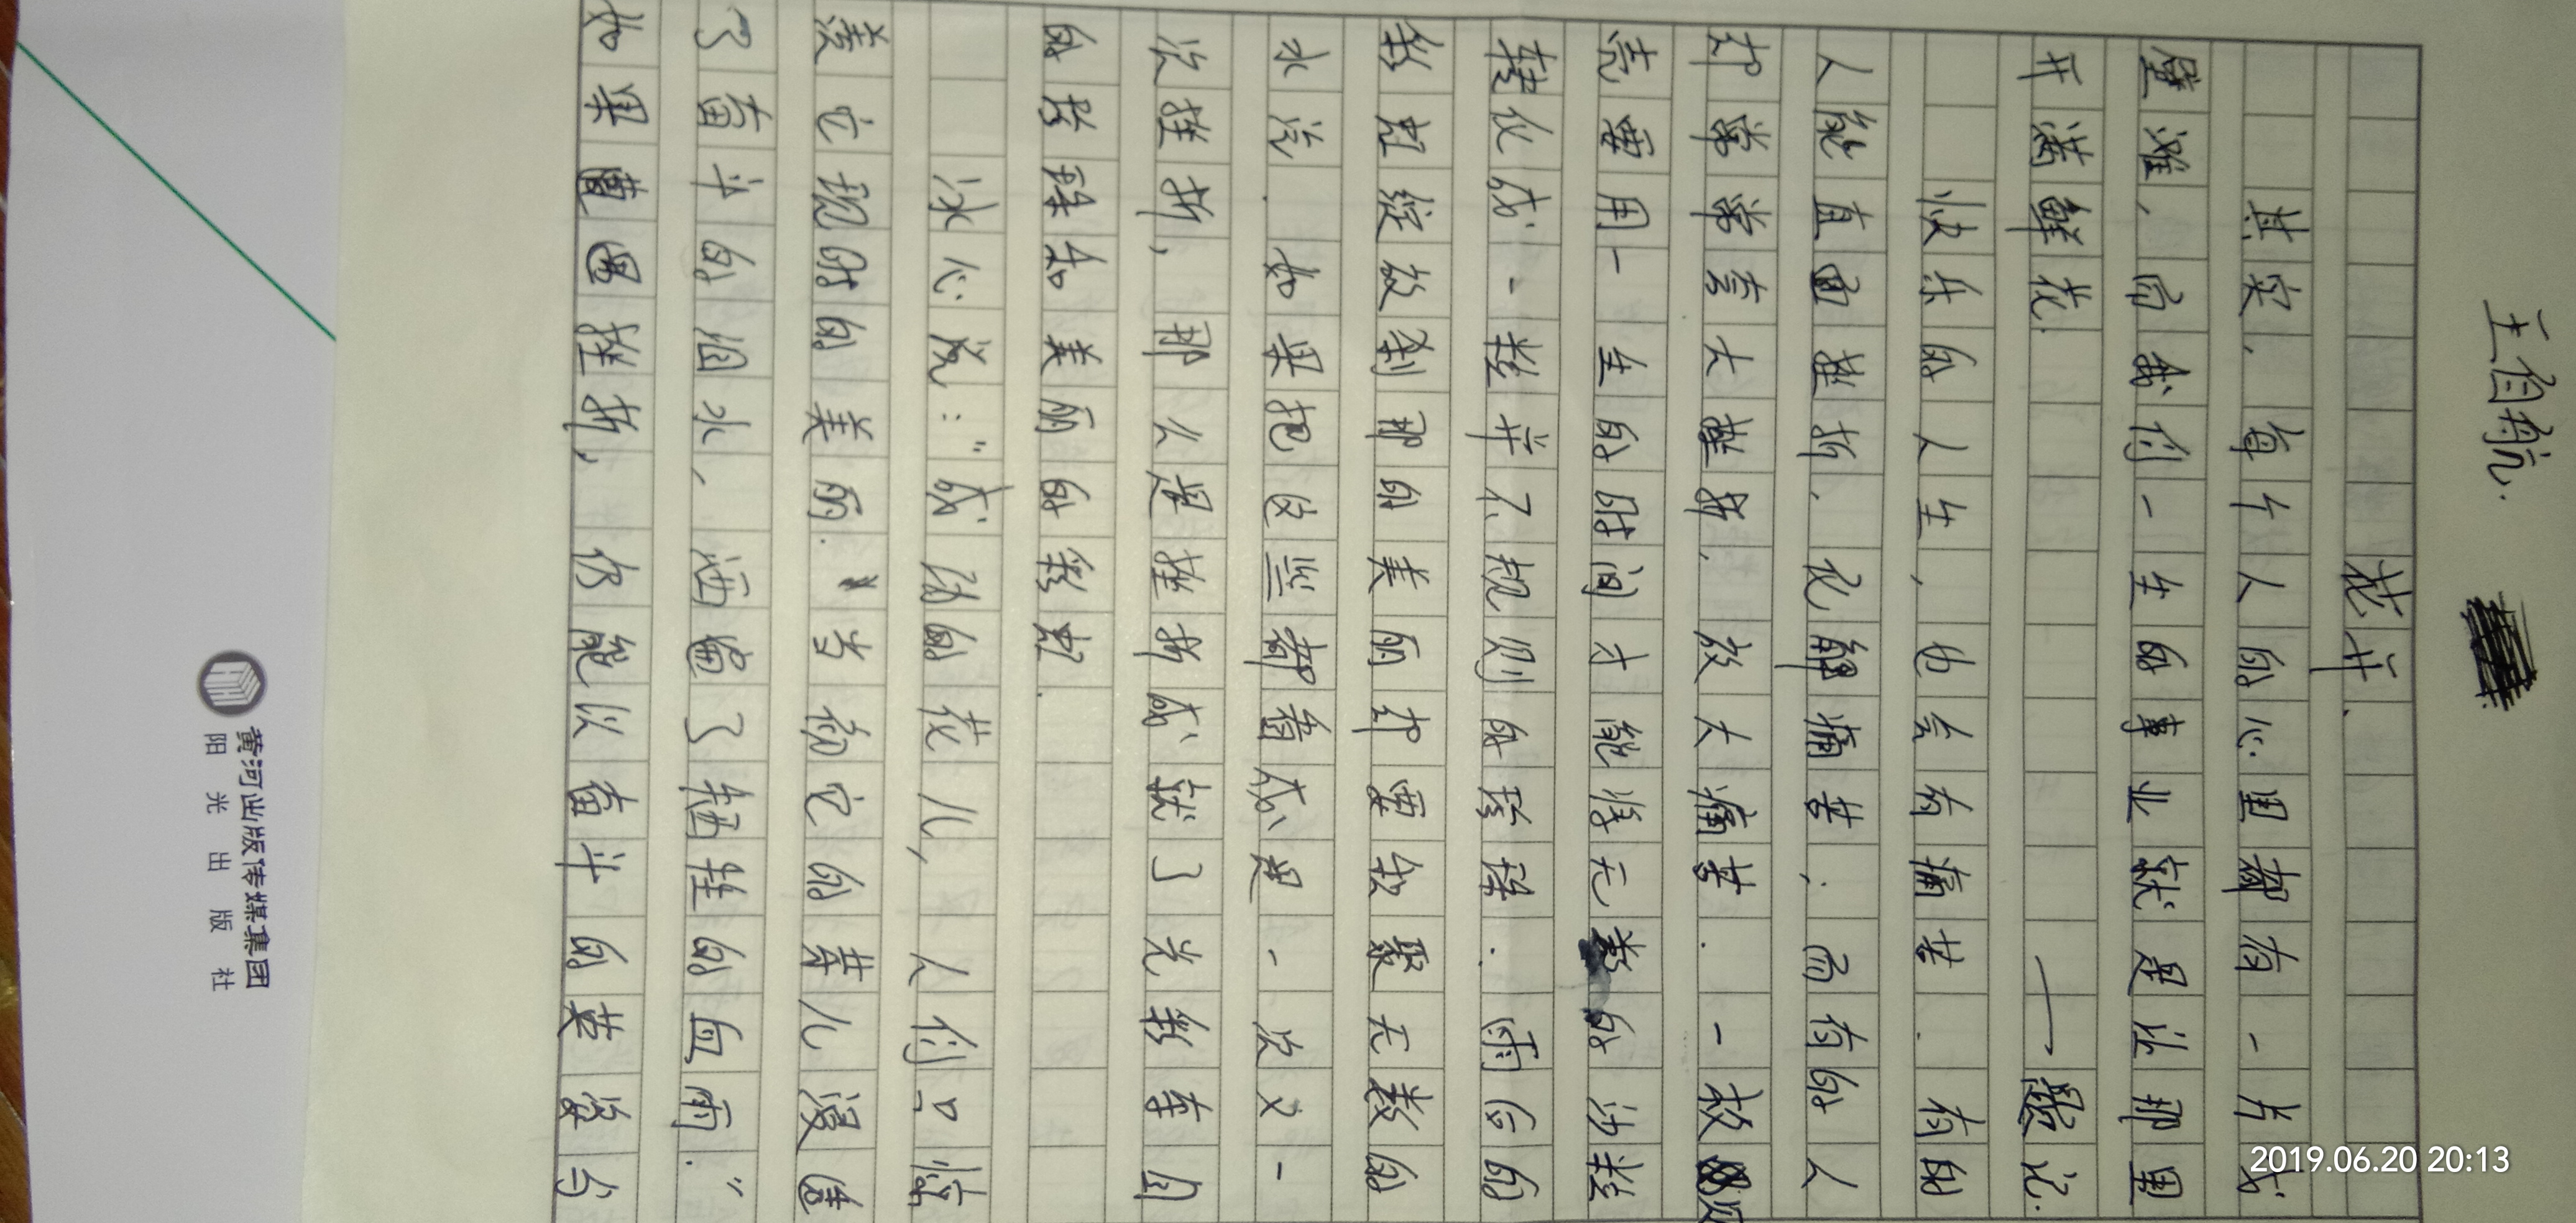 王自航.
花开.
其实，每个人的心里都有一片戈
壁滩，而我们一生的事业就是让那里
开满鲜花. ——题记.
快乐的人生，也会有痛苦. 有的
人能直面挫折，化解痛苦；而有的人
却常常夸大挫折，放大痛苦. 一枚贝
壳要用一生的时间才能将无数的沙粒
转化成一粒并不规则的珍珠. 雨后的
彩虹绽放刹那的美丽却要凝聚无数的
水汽. 如果把这些都看成是一次又一
次挫折，那么是挫折成就了光彩夺目
的珍珠和美丽的彩虹.
冰心说：“成功的花儿，人们只惊
羡它现时的美丽. 当初它的芽儿浸透
了奋斗的泪水，洒遍了牺牲的血雨.”
如果遭遇挫折，仍能以奋斗的英姿与
黄河出版传媒集团
阳光出版社
2019.06.20 20:13